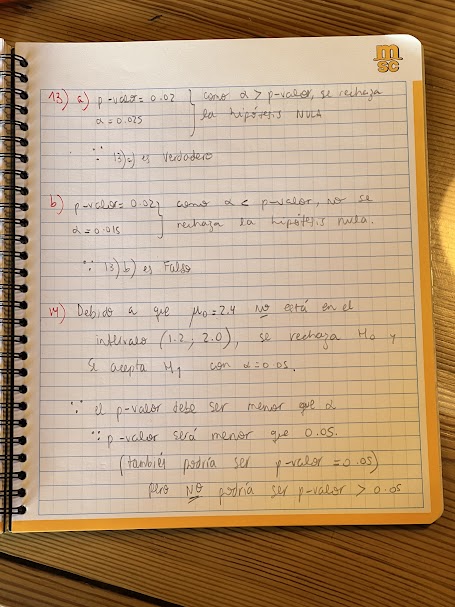 m
sc
13) a) p-valor = 0.02 } como α > p-valor, se rechaza
α = 0.025 la hipótesis NULA
∵ 13)a) es Verdadero
b) p-valor = 0.02 } como α < p-valor, no se
α = 0.015 rechaza la hipótesis nula.
∵ 13) b) es Falso
14) Debido a que μ₀ = 2.4 NO está en el
intervalo (1.2 ; 2.0), se rechaza H₀ y
se acepta H₁ con α = 0.05.
∵ el p-valor debe ser menor que α
∵ p-valor será menor que 0.05.
(también podría ser p-valor = 0.05)
pero NO podría ser p-valor > 0.05